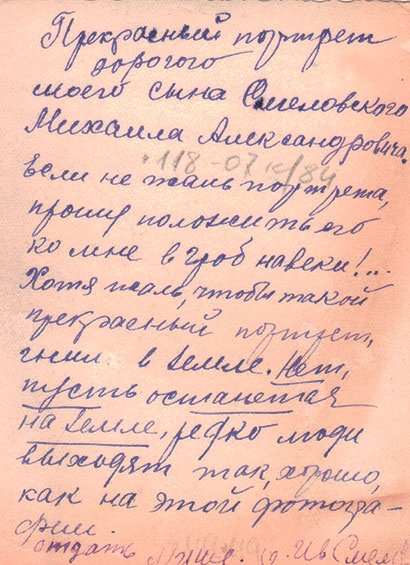 Прекрасный портрет
дорогого
моего сына Смеловского
Михаила Александровича.
118-07к/84
Если не жаль портрета,
прошу положить его
ко мне в гроб навеки!...
Хотя жаль, чтобы такой
прекрасный портрет,
гнил в земле. Нет,
пусть останется
на земле, редко люди
выходят так хорошо,
как на этой фотогра-
фии.
отдать Мише.